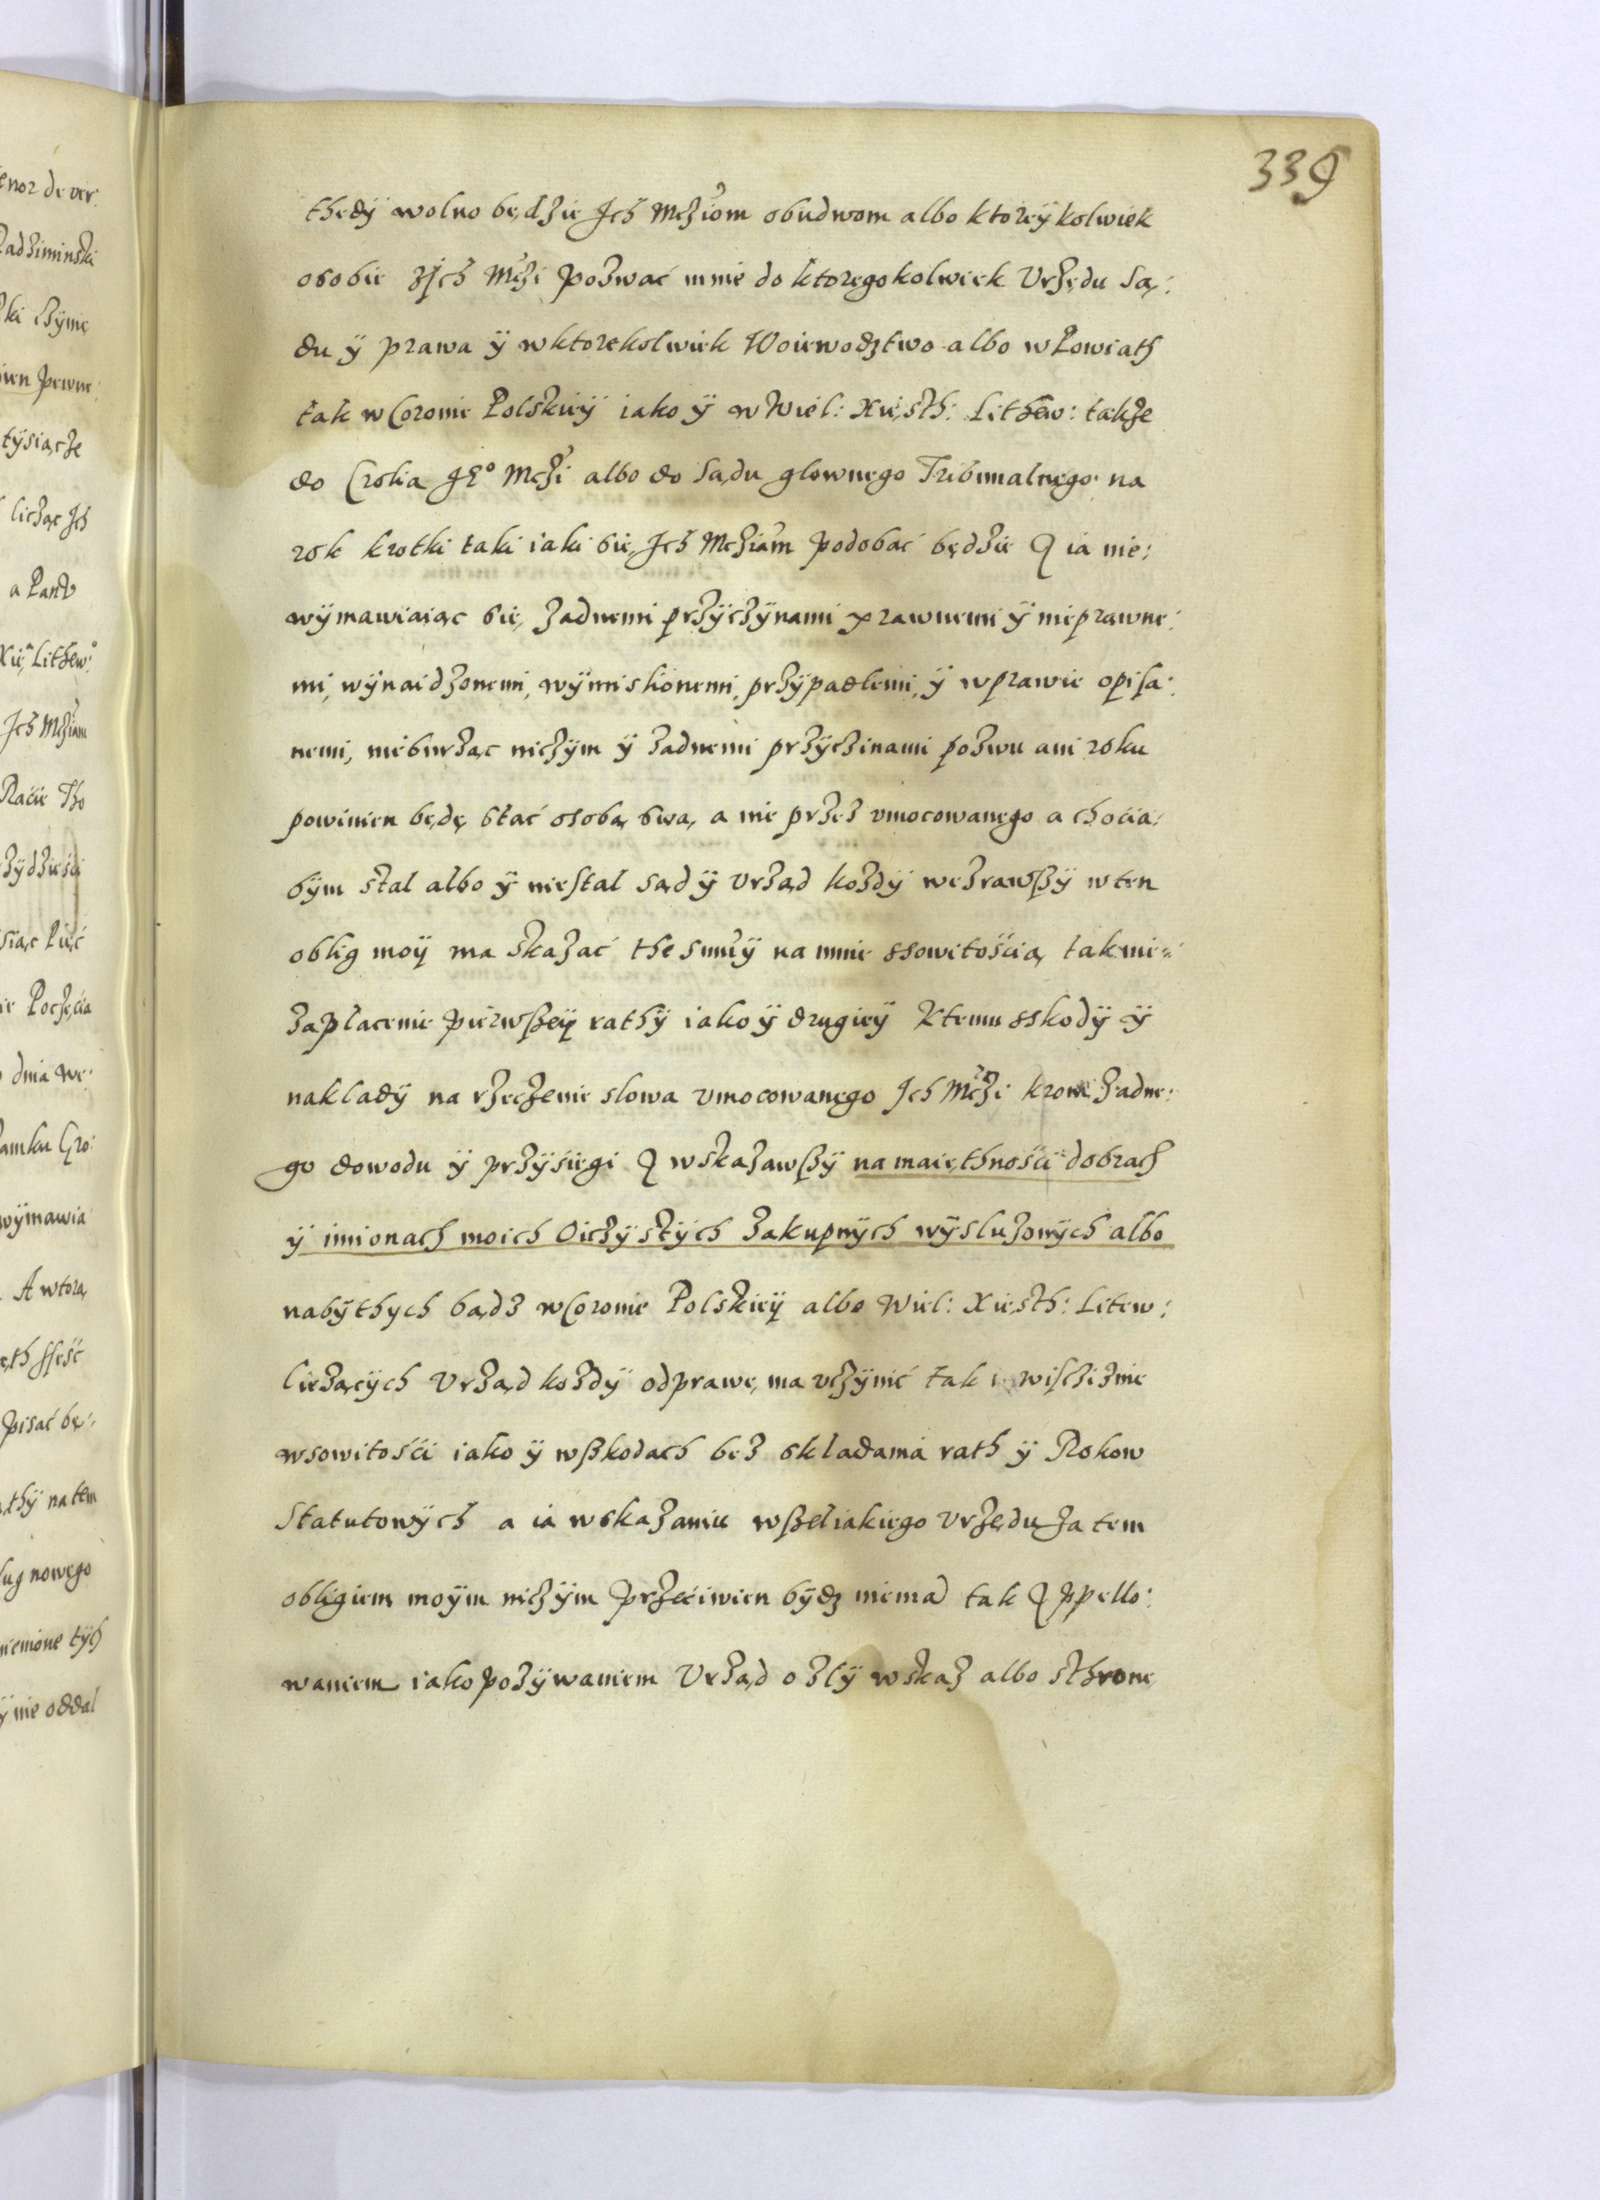 339
thedÿ wolno będzie Ich Mcziom obudwom albo ktoreÿkolwiek
osobie z Ich Mczi pozwać mnie do ktoregokolwiek Vrzędu Są:
du ÿ prawa ÿ wktorekolwiek Woiewodztwo albo w Powiath
tak w Coronie Polskieÿ iako ÿ w Wiel: Xięsth: Lithew: takze
do Crolia Je° Mczi albo do Sądu glownego Tribunalnego na
rok krotki taki iaki się Ich Mcziam podobać będzie A ia nie:
wÿmawiaiąc się zadnemi przÿczÿnami prawnemi ÿ nieprawne:
mi, wÿnaidzonemi, wÿmislionemi, przÿpadlemi, ÿ wprawie opisa:
nemi, nieburząc niczÿm ÿ zadnemi przÿczinami pozwu ani roku
powinien będę stać osobą swą, a nie przez vmocowanego a chocia:
bÿm stal albo ÿ niestal sąd ÿ Vrząd kozdÿ weźrawszÿ wten
oblig moÿ ma skazać the summÿ na mnie ssowitością, tak nie=
zaplacenie pierwszeÿ rathÿ iako ÿ drugieÿ Ktemu sskodÿ ÿ
nakladÿ na rzeczenie slowa vmocowanego Ich Mczi krom zadne:
go dowodu ÿ przÿsięgi A wskazawszÿ na maięthności dobrach
ÿ imionach moich Oiczÿstÿch Zakupnÿch wÿsluzonÿch albo
nabÿthych bądz w Coronie Polskieÿ albo Wiel: Xięsth: Litew:
lieząćÿch Vrząd kozdÿ odprawę ma vczÿnić tak w wisciznie
wsowitości iako ÿ wszkodach bez skladania rath ÿ Rokow
Statutowÿch a ia wskazaniu wszeliakiego Vrzędu za tem
obligiem moÿm niczÿm przeciwien bÿdz niemam tak Appello:
waniem iako pozÿwaniem Vrząd o zlÿ wskaz albo sthronę